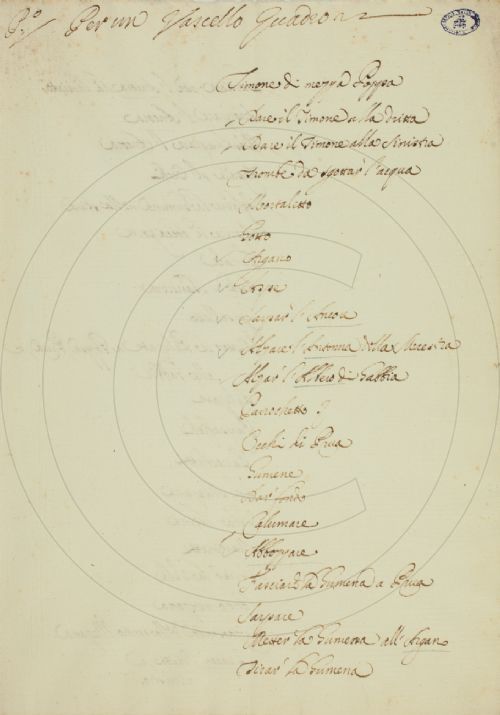 P.º Per un Vascello Quadro
Timone di mezza Poppa
Dare il Timone alla dritta
Dare il Timone alla Sinistra
Trombe da sgottar l'acqua
Botto
Argano
Aspe
Sarpar l'Ancora
Alzare l'Antenna della Maestra
Alzar l'Albero di Gabbia
Parochetto
Occhi di Prua
Gumene
Dar fondo
Calumare
Abbozzare
Fasciar la Gumena a Prua
Sarpare
Metter la Gumena all'Argano
Tirar la Gumena